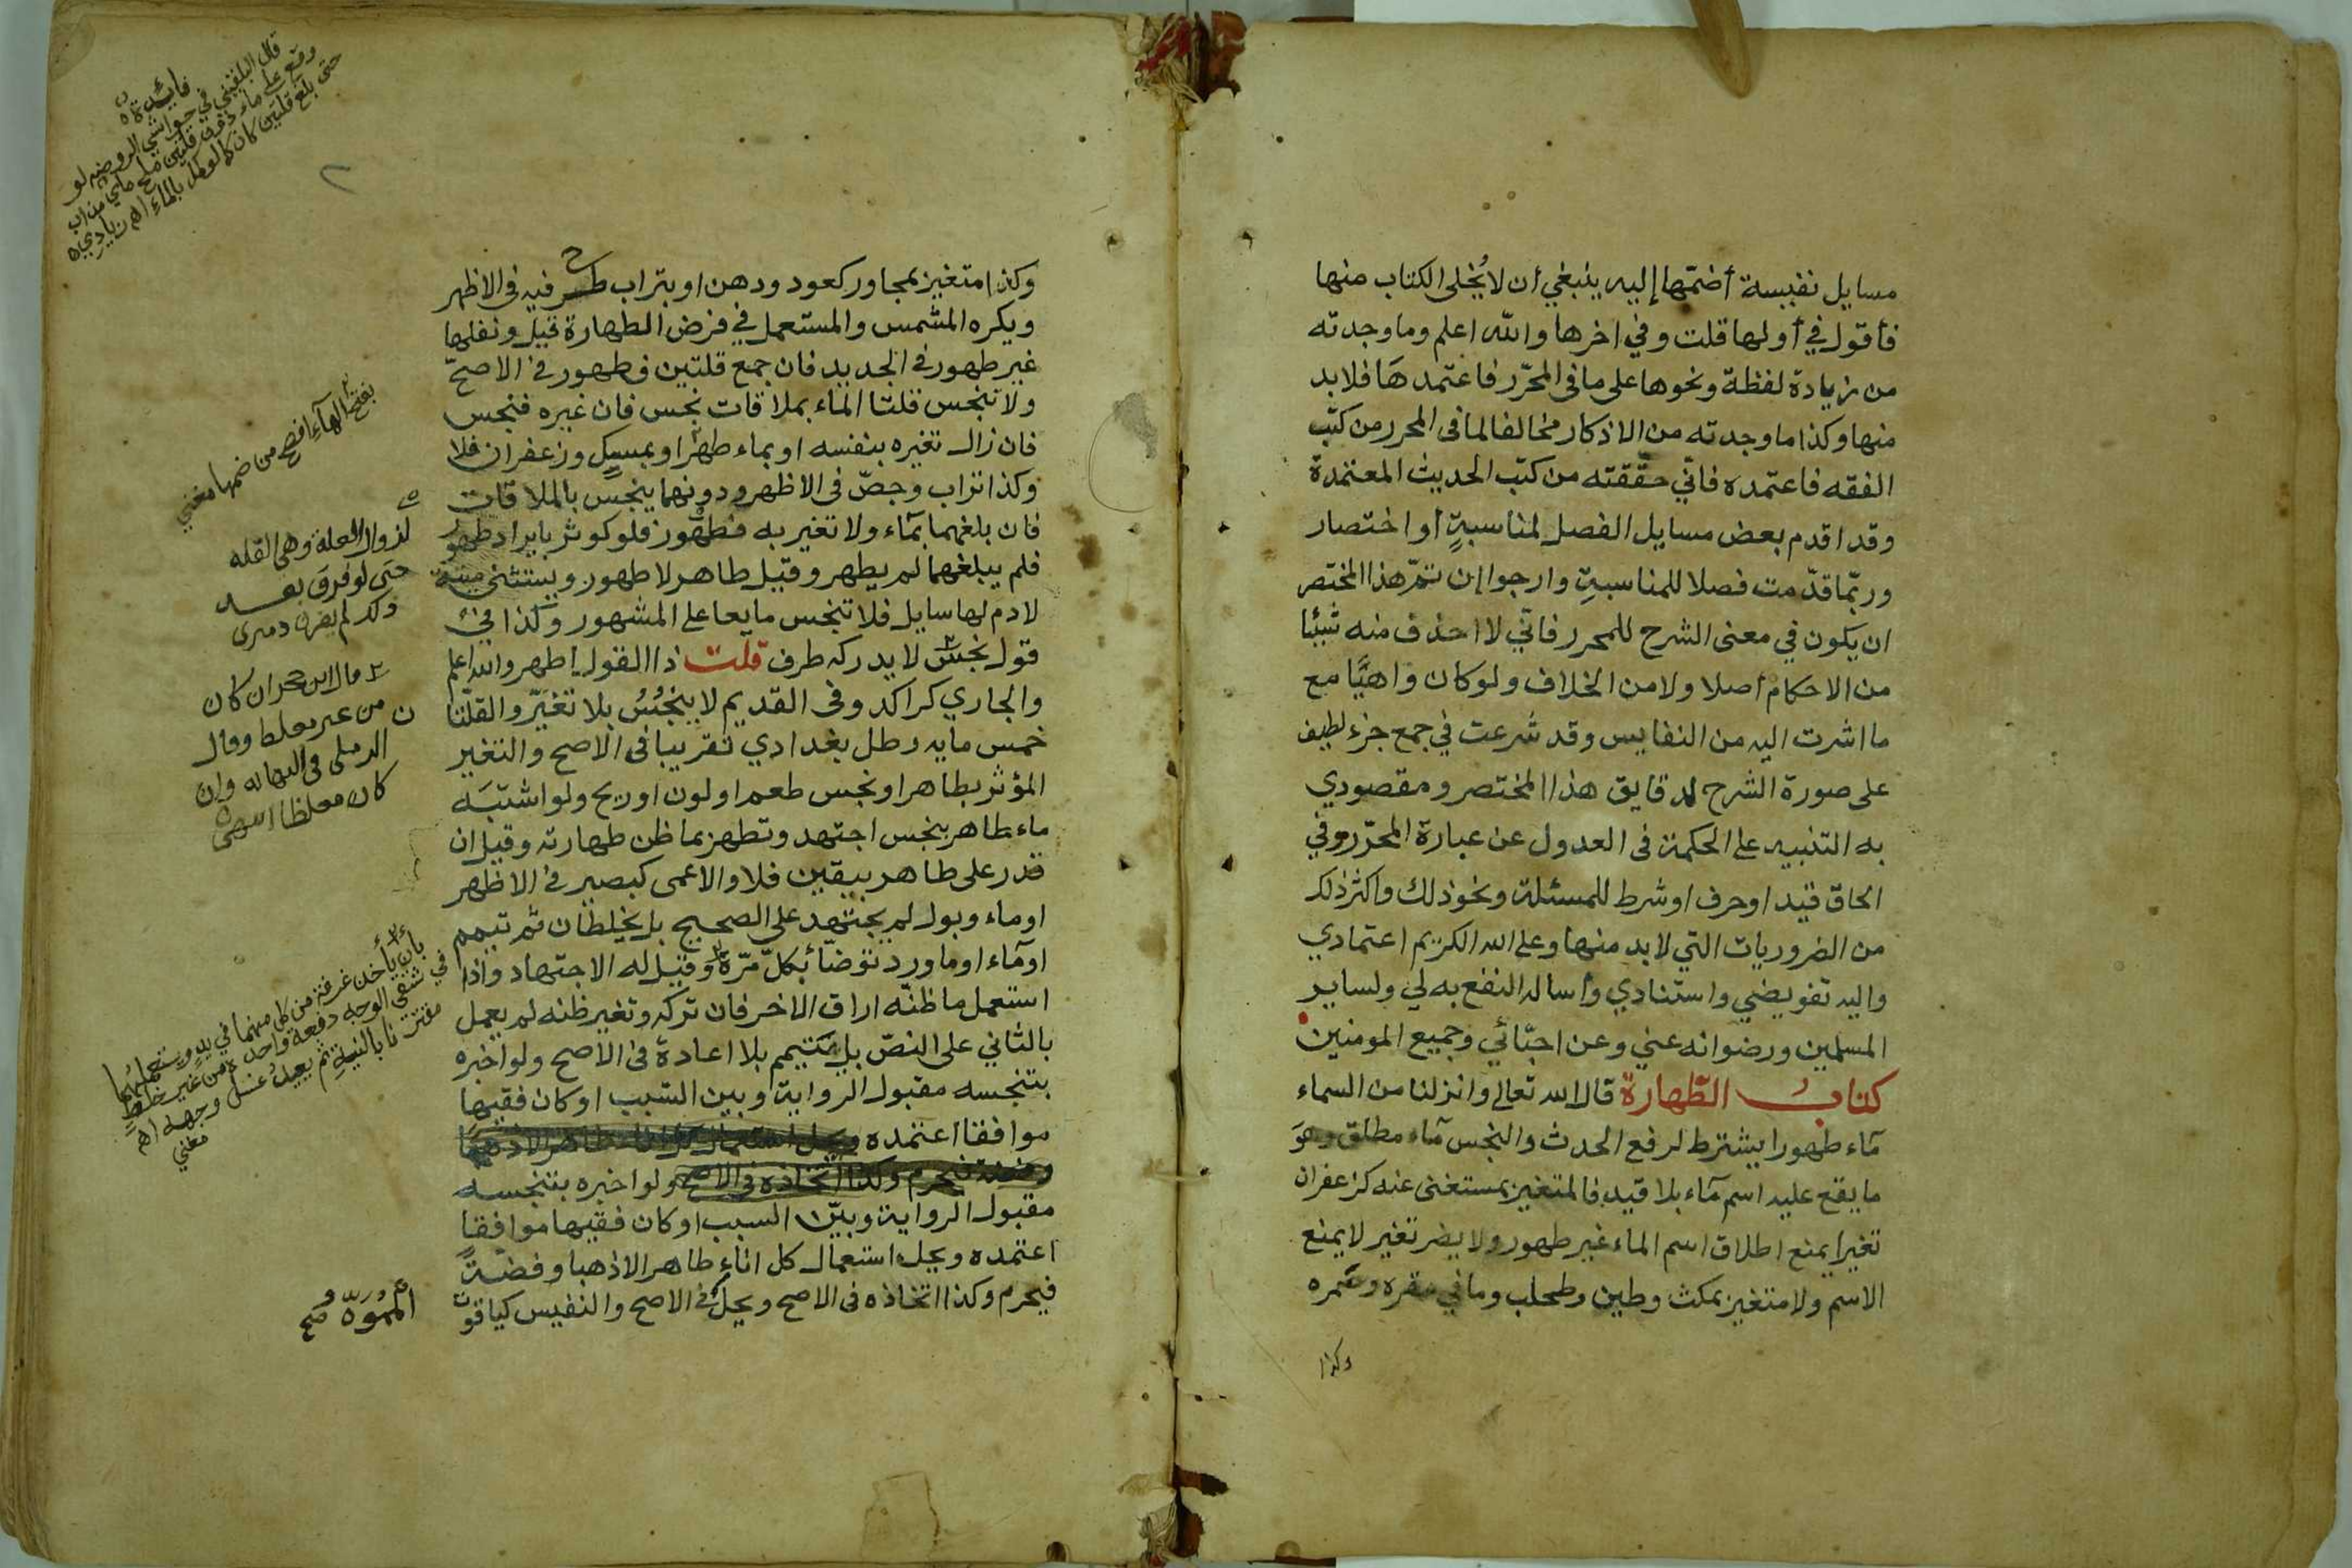 مسايل نفيسة أضمّها إليه ينبغي أن لا يُخلى الكتاب منها
فأقول في أولها قلت وفي اخرها والله اعلم وما وجدته
من زيادة لفظة ونحوها على ما فى المحرّر فاعتمدها فلا بد
منها وكذا ما وجدته من الاذكار مخالفا لما فى المحرر من كتب
الفقه فاعتمده فانّي حقّقته من كتب الحديث المعتمدة
وقد اقدم بعض مسايل الفصل لمناسبةٍ أو اختصار
وربّما قدّمت فصلا للمناسبةِ وارجوا إن تمّ هذا المختصر
ان يكون في معنى الشرح للمحرر فانّي لا احذف منه شيئا
من الاحكام أصلا ولا من الخلاف ولو كان واهيًا مع
ما اشرت اليه من النفايس وقد شرعت في جمع جزء لطيف
على صورة الشرح لدقايق هذا المختصر ومقصودي
به التنبيه على الحكمة فى العدول عن عبارة المحرّر وفي
الحاق قيد او حرف او شرط للمسئلة ونحو ذلك واكثر ذلك
من الضروريات التي لا بد منها وعلى الله الكريم اعتمادي
واليه تفويضي واستنادي وأساله النفع به لي ولساير
المسلمين ورضوانه عني وعن احبّائي وجميع المومنين
كتاب الطّهارة قال الله تعالى وانزلنا من السماء
مآء طهورا يشترط لرفع الحدث والنجس مآء مطلق وهوَ
ما يقع عليه اسم مآء بلا قيد فالمتغير بمستغنى عنه كزعفران
تغيرا يمنع اطلاق اسم الماء غير طهور ولا يضر تغير لا يمنع
الاسم ولا متغير بمكث وطين وطحلب وما في مقره وممره
وكذا
وكذا متغير بمجاور كعود ودهن او بتراب طرح فيه فى الاظهر
ويكره المشمس والمستعمل في فرض الطهارة قيل ونفلها
غير طهور في الجديد فان جمع قلتين فطهور في الاصحّ
ولا تنجس قلتا الماء بملاقات نجس فان غيره فنجس
فان زال تغيره بنفسه او بماء طهر او بمسك وزعفران فلا
وكذا تراب وجصّ فى الاظهر ودونهما ينجس بالملاقات
فان بلغهما بمآء ولا تغير به فطهور فلو كوثر بايراد طهور
فلم يبلغهما لم يطهر وقيل طاهر لا طهور ويستثنى ميتة
لا دم لها سايل فلا تنجس مايعا على المشهور وكذا في
قول نجس لا يدركه طرف قلت ذا القول اظهر والله اعلم
والجاري كراكد وفى القديم لا ينجُسُ بلا تغيّر والقلّتا
ن
خمس مايه رطل بغدادي تقريبا فى الاصح والتغير
المؤثر بطاهر او نجس طعم او لون او ريح ولو اشتبَه
ماء طاهر بنجس اجتهد وتطهر بما ظن طهارته وقيل ان
قدر على طاهر بيقين فلا والاعمى كبصير في الاظهر
او ماء وبول لم يجتهد على الصحيح بل يخلطان ثم تيمم
او مآء او ماورد توضّأ بكلّ مرّة وقيل له الاجتهاد واذا
استعمل ما ظنّه اراق الاخر فان تركه وتغير ظنه لم يعمل
بالثاني على النصّ بل يتيمم بلا اعادة فى الاصح ولو اخبره
بتنجسه مقبول الرواية وبين السّبب او كان فقيها
موافقا اعتمده ويحل استعمال كل اناء طاهر الا ذهبا
وفضة فيحرم وكذا اتخاذه فى الاصح ولو اخبره بتنجسه
مقبول الرواية وبيّن السبب او كان فقيها موافقًا
اعتمده ويحل استعمال كل اناءٍ طاهر الا ذهبا وفضّةً
فيحرم وكذا اتخاذه فى الاصح ويحلّ فى الاصح والنفيس كياقوت
فايدة
قال البلقيني في حواشي الروضه لو
وقع على ماء دون قلتين ملح مايي من اب
حتى بلغ قلتين كان كما لو كمل بالماء اهـ زيادي
بفتح الهآءِ افصح من ضمها مغني
لزوال العلة وهى القله
حتى لو فرق بعد
ذلك لم يضر دميرى
قال ابن حجر ان كان
من غير مغلظ وقال
الرملى فى النهايه وان
كان مغلظا انتهى
بأن يأخذ غرفة من كل منهما في يدٍ ويستعملهما
في شقي الوجه دفعة واحدة من غير خلطٍ
مقترنا بالنيةِ ثم يعيدُ غسل وجهه اهـ
مغني
المموّه صح